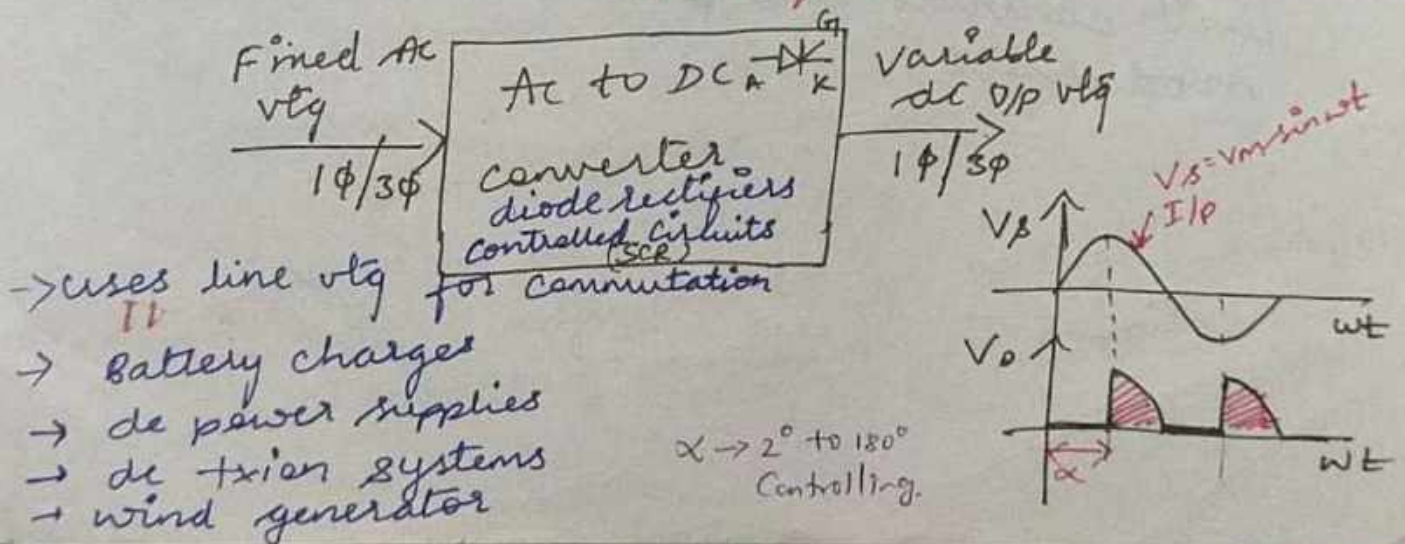 Fined Ac
vtg
1ϕ/3ϕ
G
Ac to DC A K
converter
diode rectifiers
controlled circuits
(SCR)
Variable
dc O/p vtg
1ϕ/3ϕ
→ uses line vtg for commutation
→ Battery charges
→ dc power supplies
→ dc txion systems
→ wind generator
α → 2° to 180°
Controlling.
Vs = Vm sin wt
I/p
Vs
wt
Vo
α
wt